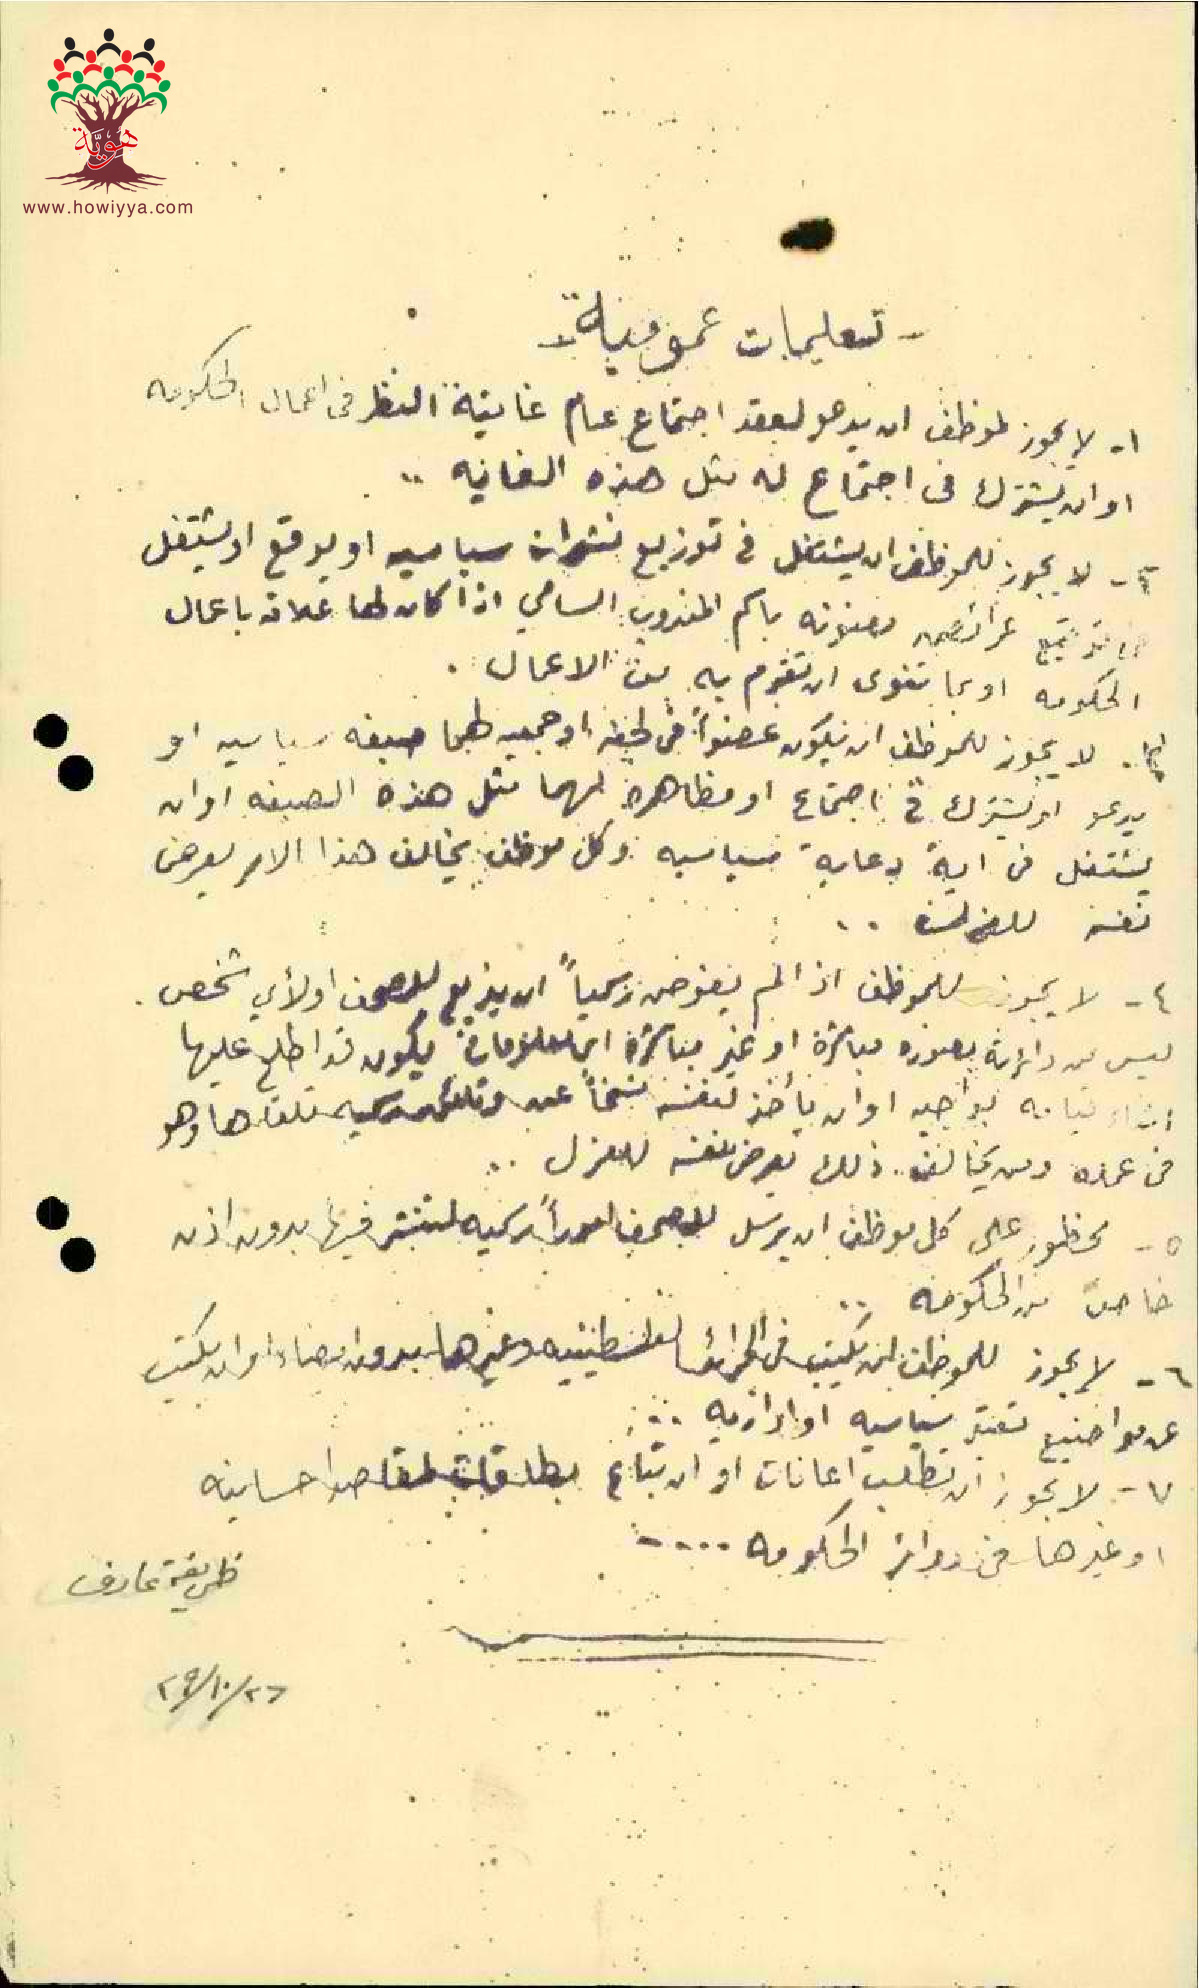 هوية
www.howiyya.com
- تعليمات عمومية -
١- لا يجوز لموظف ان يدعو لعقد اجتماع عام غايته النظر فى اعمال الحكومه
او ان يشترك فى اجتماع له مثل هذه الغايه ..
٢- لا يجوز للموظف ان يشتغل فى توزيع نشرات سياسيه او يوقع او يشتغل
توقيع عرائض معنونه باسم المندوب السامي اذا كان لها علاقه باعمال
الحكومه او بما تنوى ان تقوم به من الاعمال .
٣- لا يجوز للموظف ان يكون عضواً فى لجنه او جمعيه لهما صبغه سياسيه او
يدعو او يشترك فى اجتماع او مظاهره لهما مثل هذه الصبغه او ان
يشتغل فى اية دعاية سياسيه وكل موظف يخالف هذا الامر يعرض
نفسه ..
٤- لا يجوز للموظف اذا لم يفوض رسمياً ان يذيع للصحف او لأي شخص .
ليس من دائرته بصوره مباشرة او غير مباشرة اي معلومات يكون قد اطلع عليها
اثناء قيامه بواجبه او ان يأخذ لنفسه نسخاً عن وثائق رسميه تلقاها وهو
فى عمله ومن يخالف ذلك يعرض نفسه للعزل ..
٥- محظور على كل موظف ان يرسل للصحف اموراً رسميه لتنشر فيها بدون اذن
خاص من الحكومه ..
٦- لا يجوز للموظف ان يكتب فى الجرائد الفلسطينيه وغيرها بدون امضاء او ان يكتب
عن مواضيع تعتبر سياسيه او اداريه ..
٧- لا يجوز ان تطلب اعانات او ان تباع بطاقات لمقاصد احسانيه
او غيرها فى دوائر الحكومه ....
ظريفة عارف
٢٦/١٠/٢٩